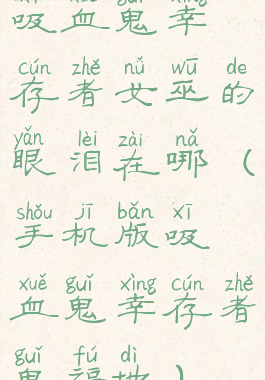 吸血鬼幸
cún zhě nǚ wū de
存者女巫的
yǎn lèi zài nǎ
眼泪在哪（
shǒu jī bǎn xī
手机版吸
xuě guǐ xìng cún zhě
血鬼幸存者
guǐ fú dì
鬼福地）